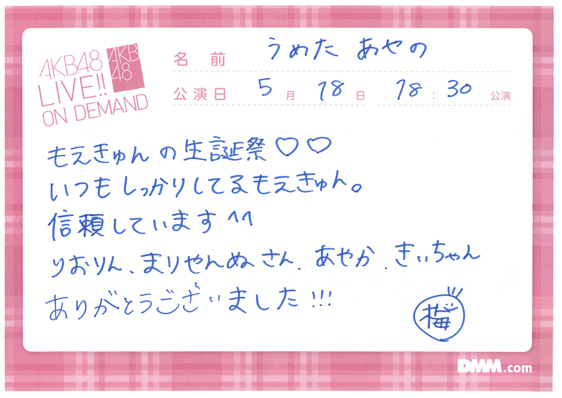 AKB48
LIVE!!
ON DEMAND
AKB
48
名 前 うめた あやの
公演日 5 月 18 日 18 : 30 公演
もえきゅんの生誕祭♡♡
いつもしっかりしてるもえきゅん。
信頼しています^^
りおりん、まりやんぬさん、あやか、きぃちゃん
ありがとうございました!!!
梅
DMM.com